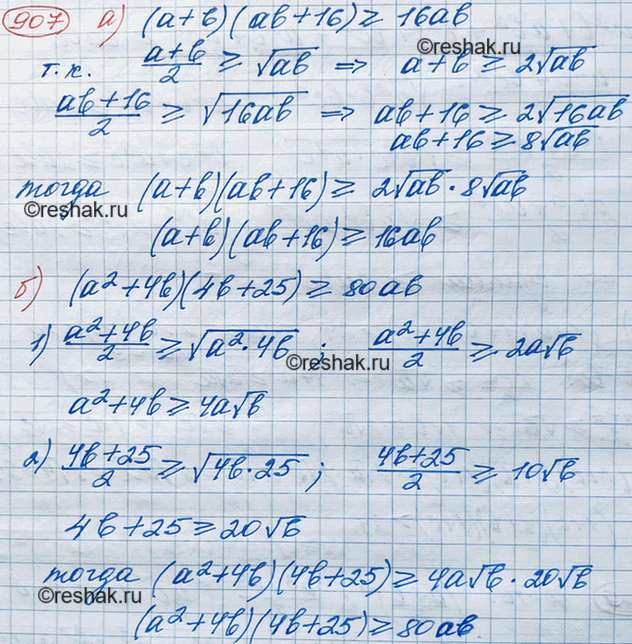 907 а) (a+b)(ab+16)≥16ab
©reshak.ru
т.к. (a+b)/2 ≥ √ab ⇒ a+b ≥ 2√ab
(ab+16)/2 ≥ √16ab ⇒ ab+16 ≥ 2√16ab
ab+16 ≥ 8√ab
тогда (a+b)(ab+16) ≥ 2√ab · 8√ab
©reshak.ru
(a+b)(ab+16) ≥ 16ab
б) (a²+4b)(4b+25) ≥ 80ab
1) (a²+4b)/2 ≥ √a²·4b ; (a²+4b)/2 ≥ 2a√b
©reshak.ru
a²+4b ≥ 4a√b
2) (4b+25)/2 ≥ √4b·25 ; (4b+25)/2 ≥ 10√b
4b+25 ≥ 20√b
тогда (a²+4b)(4b+25) ≥ 4a√b · 20√b
©reshak.ru
(a²+4b)(4b+25) ≥ 80ab